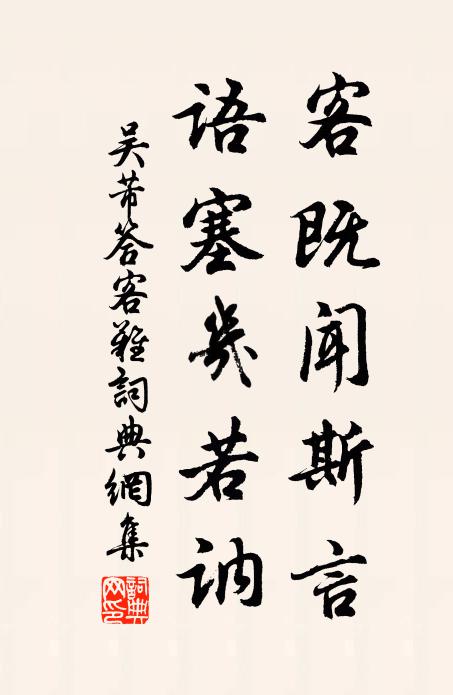 客既闻斯言
语塞几若讷
吴芾答客难詞典網集
詞典网印